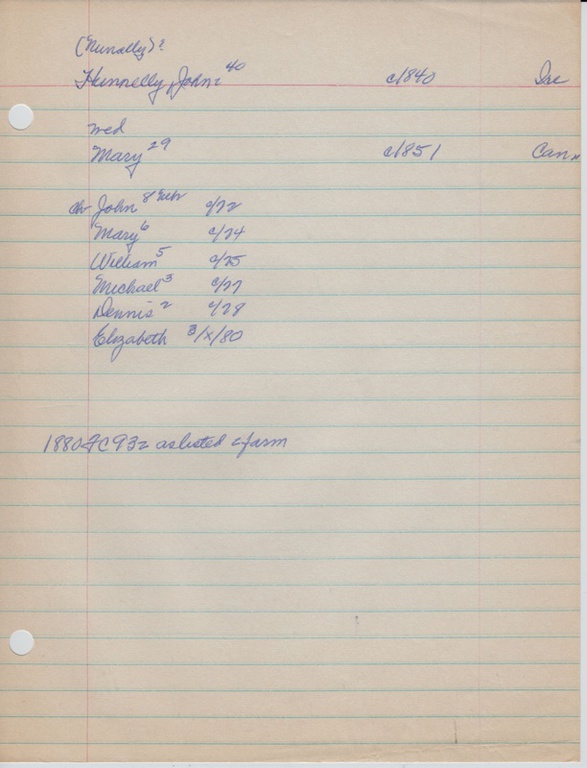 (Nunally)?
Hunnelly, John 40 c1840 Ire
med
Mary 29 c1851 Can
ch John 8 c/72
Mary 6 c/74
William 5 c/75
Michael 3 c/77
Dennis 2 c/78
Elizabeth 3/X/80
1880 FC 932 as listed c farm